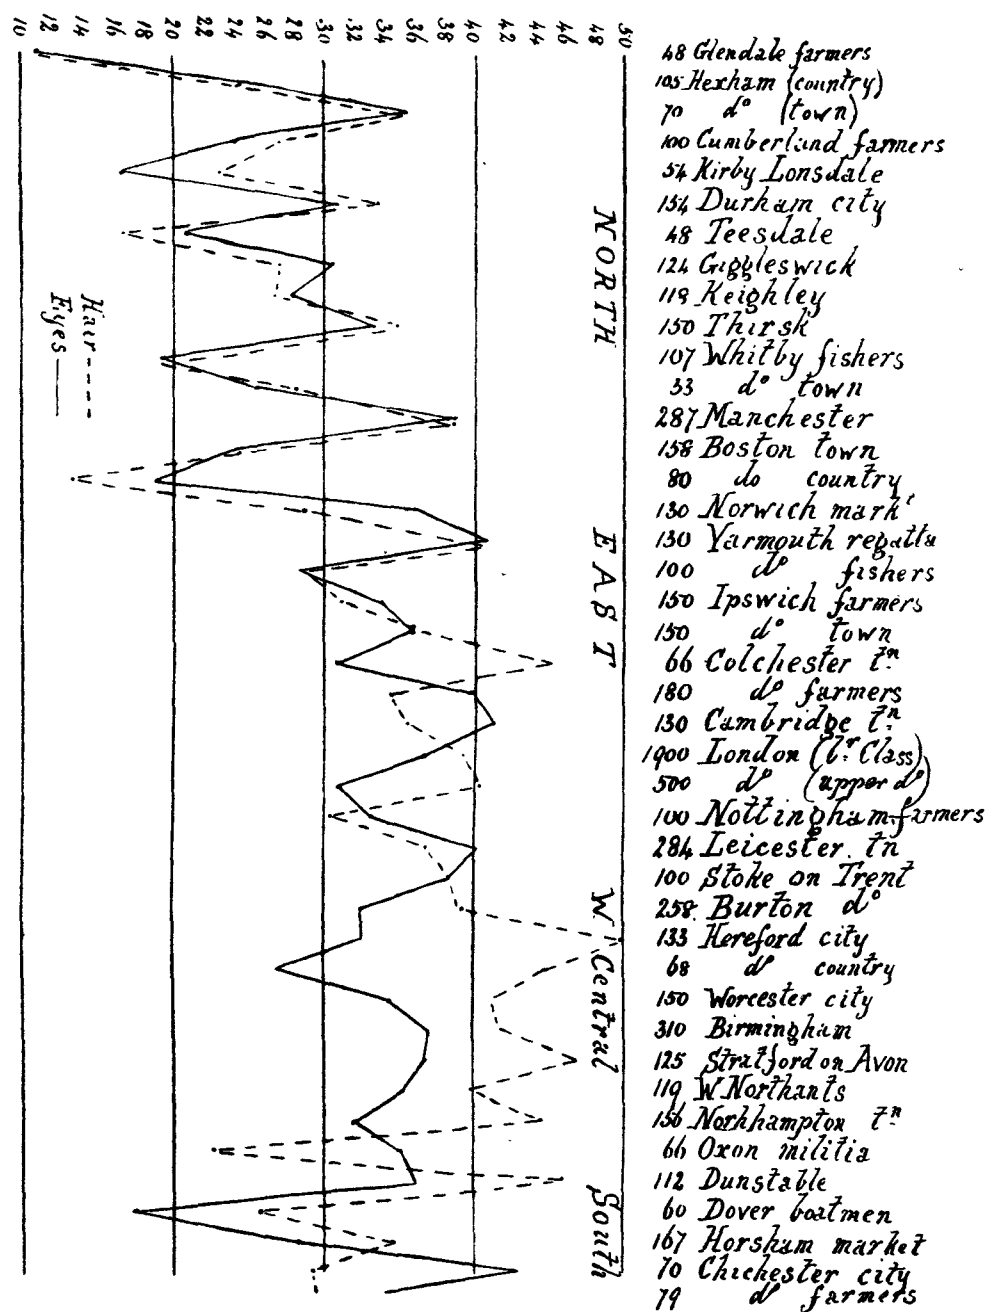 10 12 14 16 18 20 22 24 26 28 30 32 34 36 38 40 42 44 46 48 50
48 Glendale farmers
105 Hexham (country)
70 dº (town)
100 Cumberland farmers
54 Kirby Lonsdale
154 Durham city
48 Teesdale
124 Giggleswick
119 Keighley
150 Thirsk
107 Whitby fishers
33 dº town
287 Manchester
158 Boston town
80 do country
130 Norwich markᵗ
130 Yarmouth regatta
100 dº fishers
150 Ipswich farmers
150 dº town
66 Colchester tⁿ
180 dº farmers
130 Cambridge tⁿ
1900 London (lʳ Class)
500 dº (upper dº)
100 Nottingham farmers
284 Leicester tn
100 Stoke on Trent
258 Burton dº
133 Hereford city
68 dº country
150 Worcester city
310 Birmingham
125 Stratford on Avon
119 W Northants
156 Norhhampton tⁿ
66 Oxon militia
112 Dunstable
60 Dover boatmen
167 Horsham market
70 Chichester city
79 dº farmers
NORTH
EAST
W Central
South
Hair ----
Eyes ——